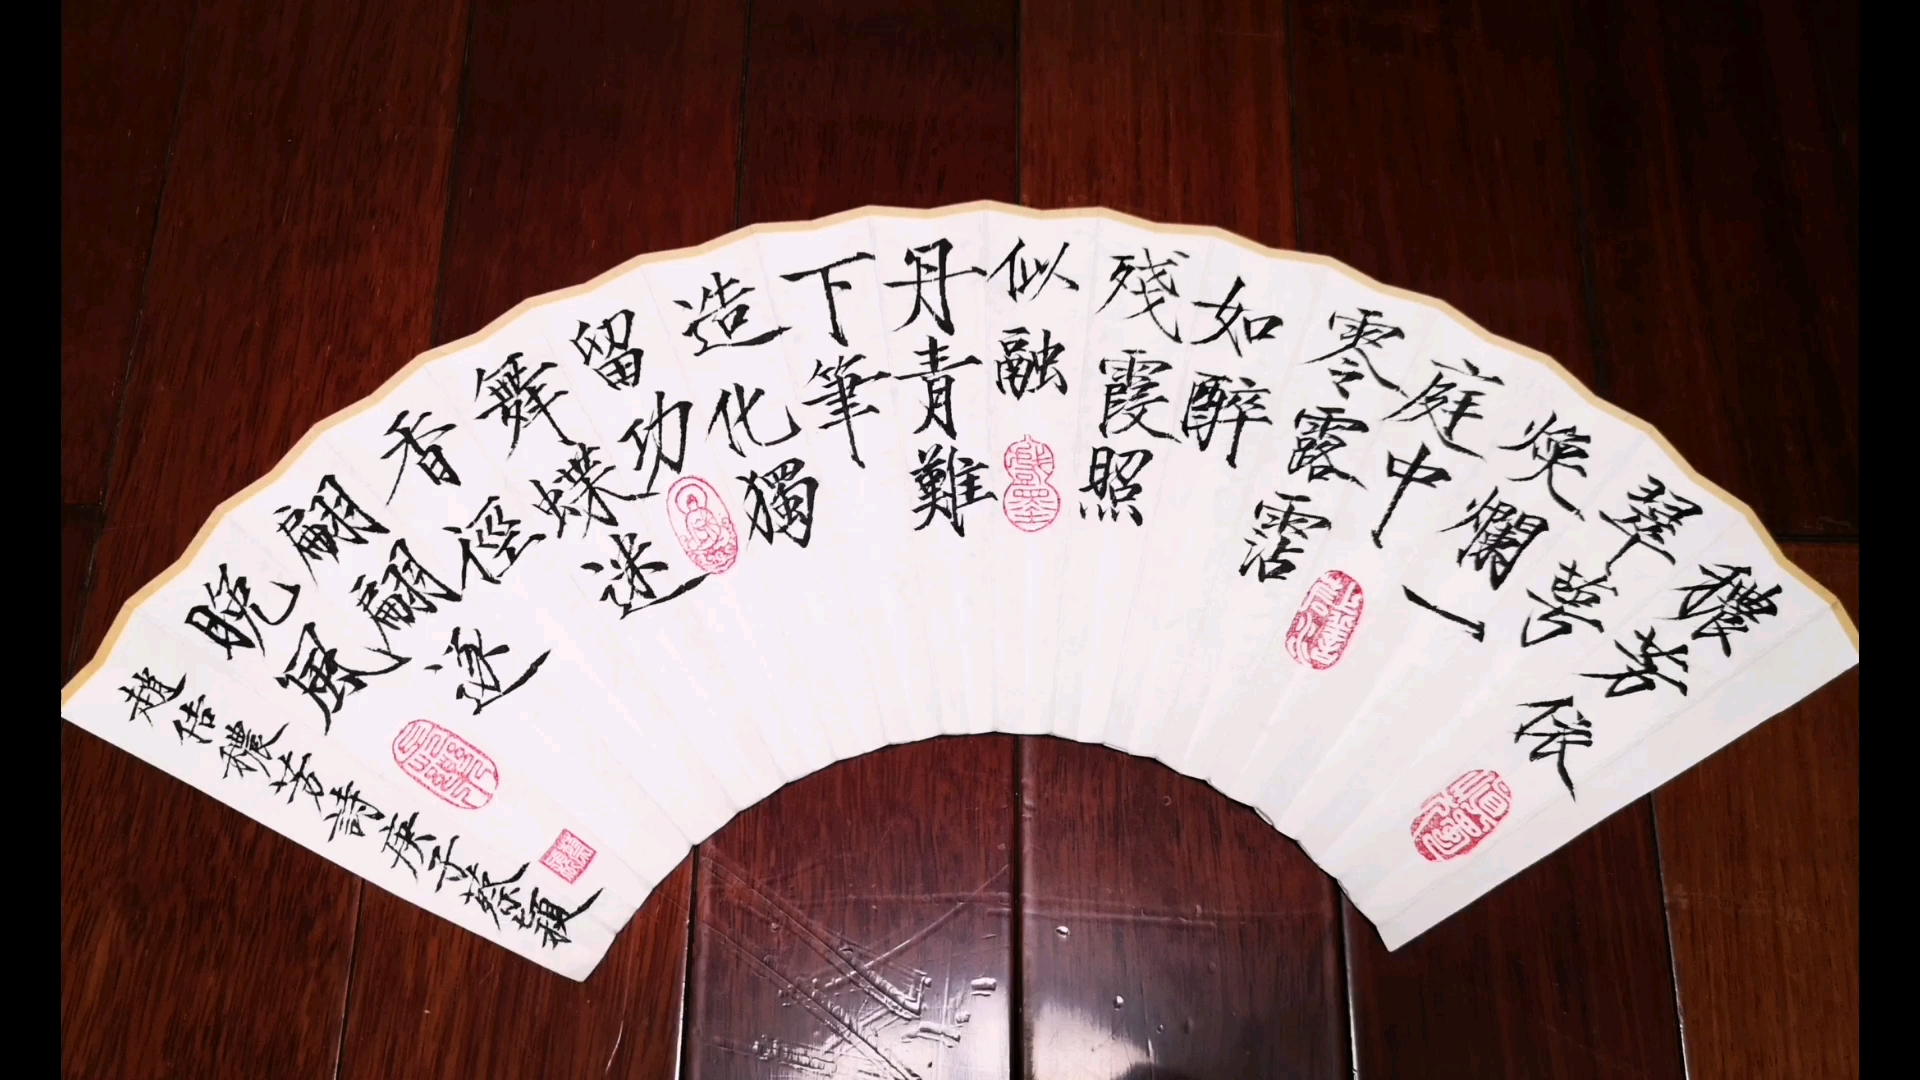 穠芳依
翠萼
煥爛一
庭中
零露霑
如醉
殘霞照
似融
丹青難
下筆
造化獨
留功
舞蝶迷
香徑
翩翩逐
晚風
趙佶穠芳詩庚子